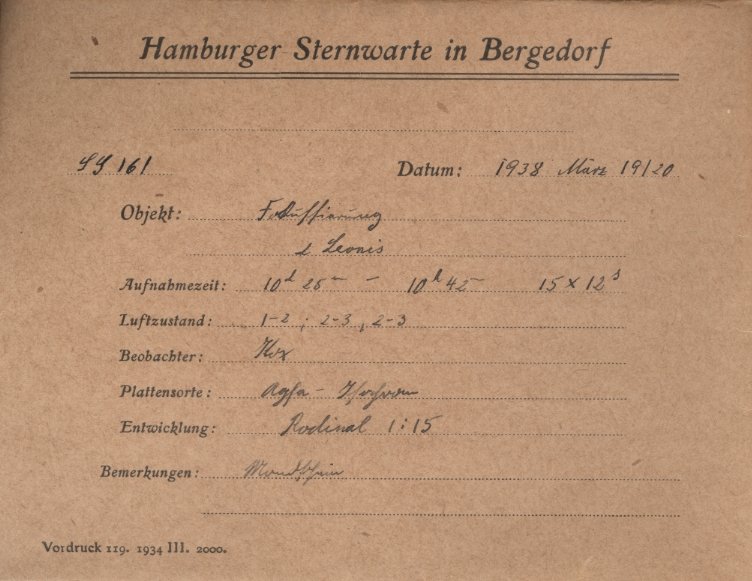 Hamburger Sternwarte in Bergedorf
SS 161 Datum: 1938 März 19/20
Objekt: Fokussierung
Leonis
Aufnahmezeit: 10h 26m – 10h 42– 15 × 12s
Luftzustand: 1-2 ; 2-3 , 2-3
Beobachter:
Plattensorte: Agfa -
Entwicklung: Rodinal 1:15
Bemerkungen: Mondschein
Vordruck 119. 1934 III. 2000.